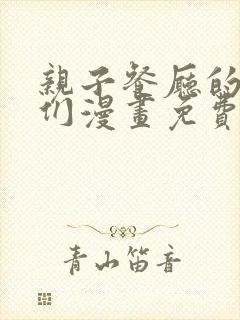 親子餐廳的
们漫畫免費
青山笛音